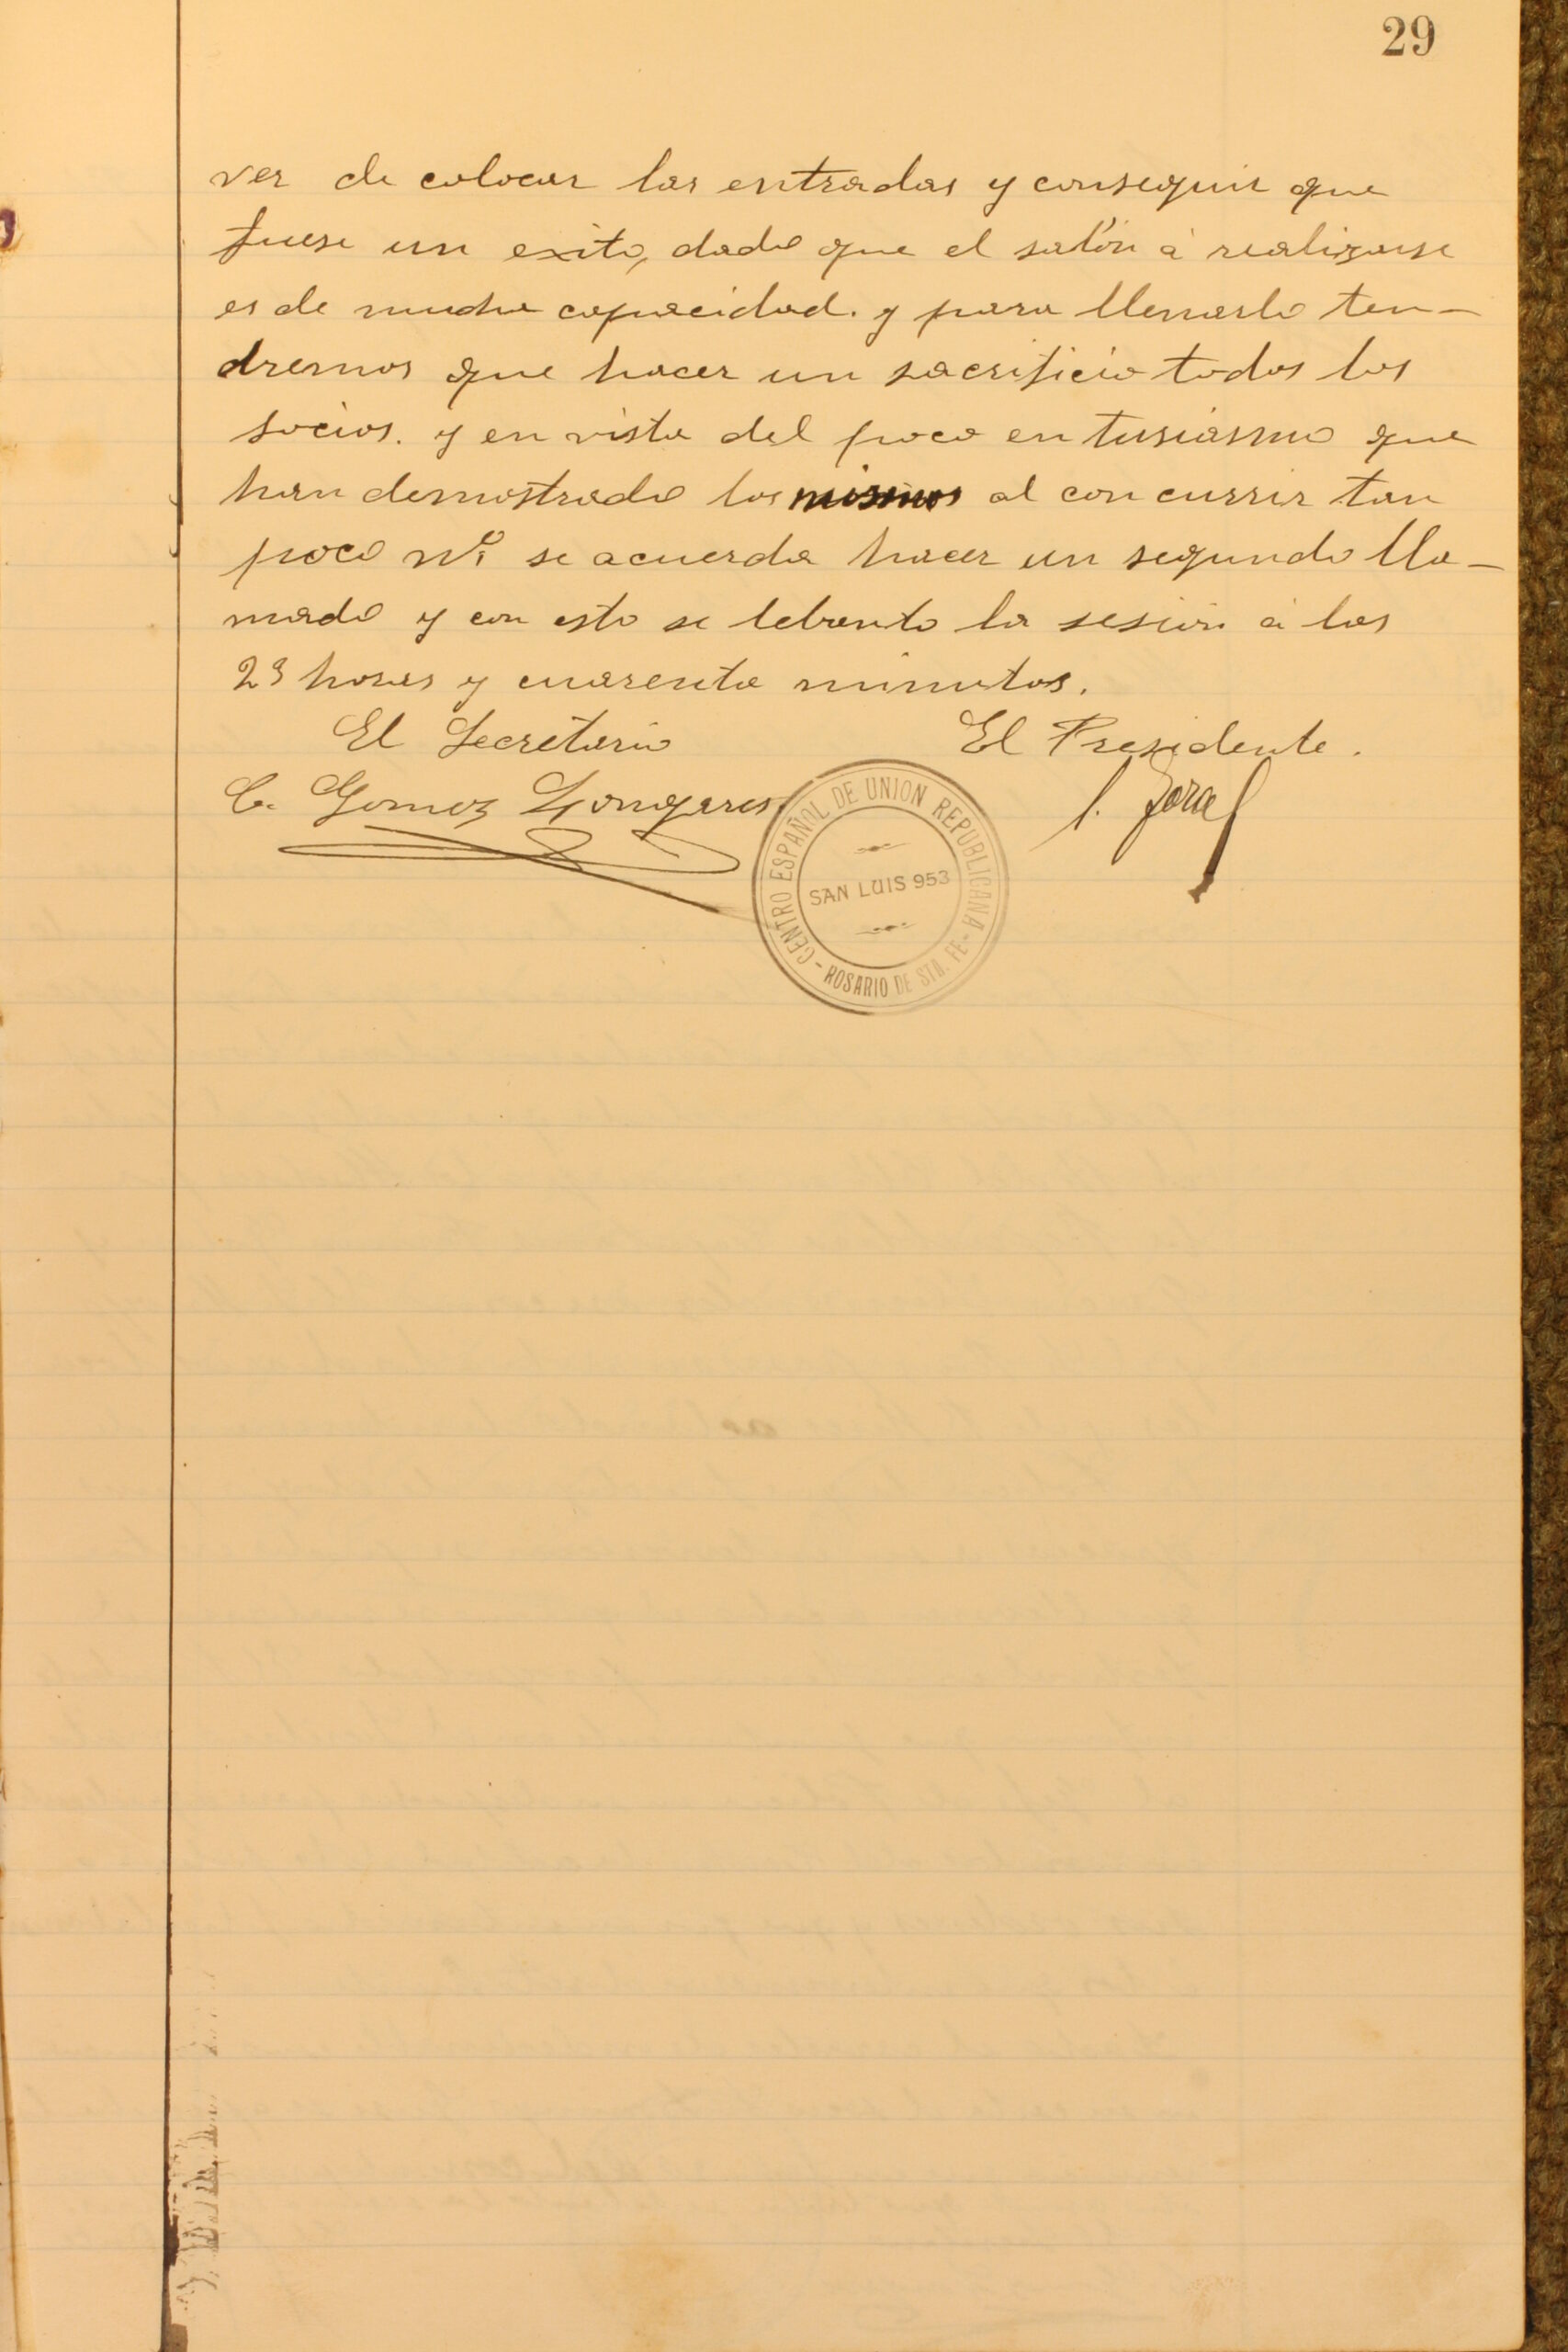 29
ver de colocar las entradas y conseguir que
fuese un exito, dado que el salón á realizarse
es de mucha capacidad. y para llenarlo ten-
dremos que hacer un sacrificio todos los
socios. y en vista del poco entusiasmo que
han demostrado los mismos al concurrir tan
poco Nº se acuerda hacer un segundo lla-
mado y con esto se lebanto la sesión á las
23 horas y cuarenta minutos.
El Secretario El Presidente.
C. Gomez Longares
CENTRO ESPAÑOL DE UNION REPUBLICANA
SAN LUIS 953
- ROSARIO DE STA. FE -